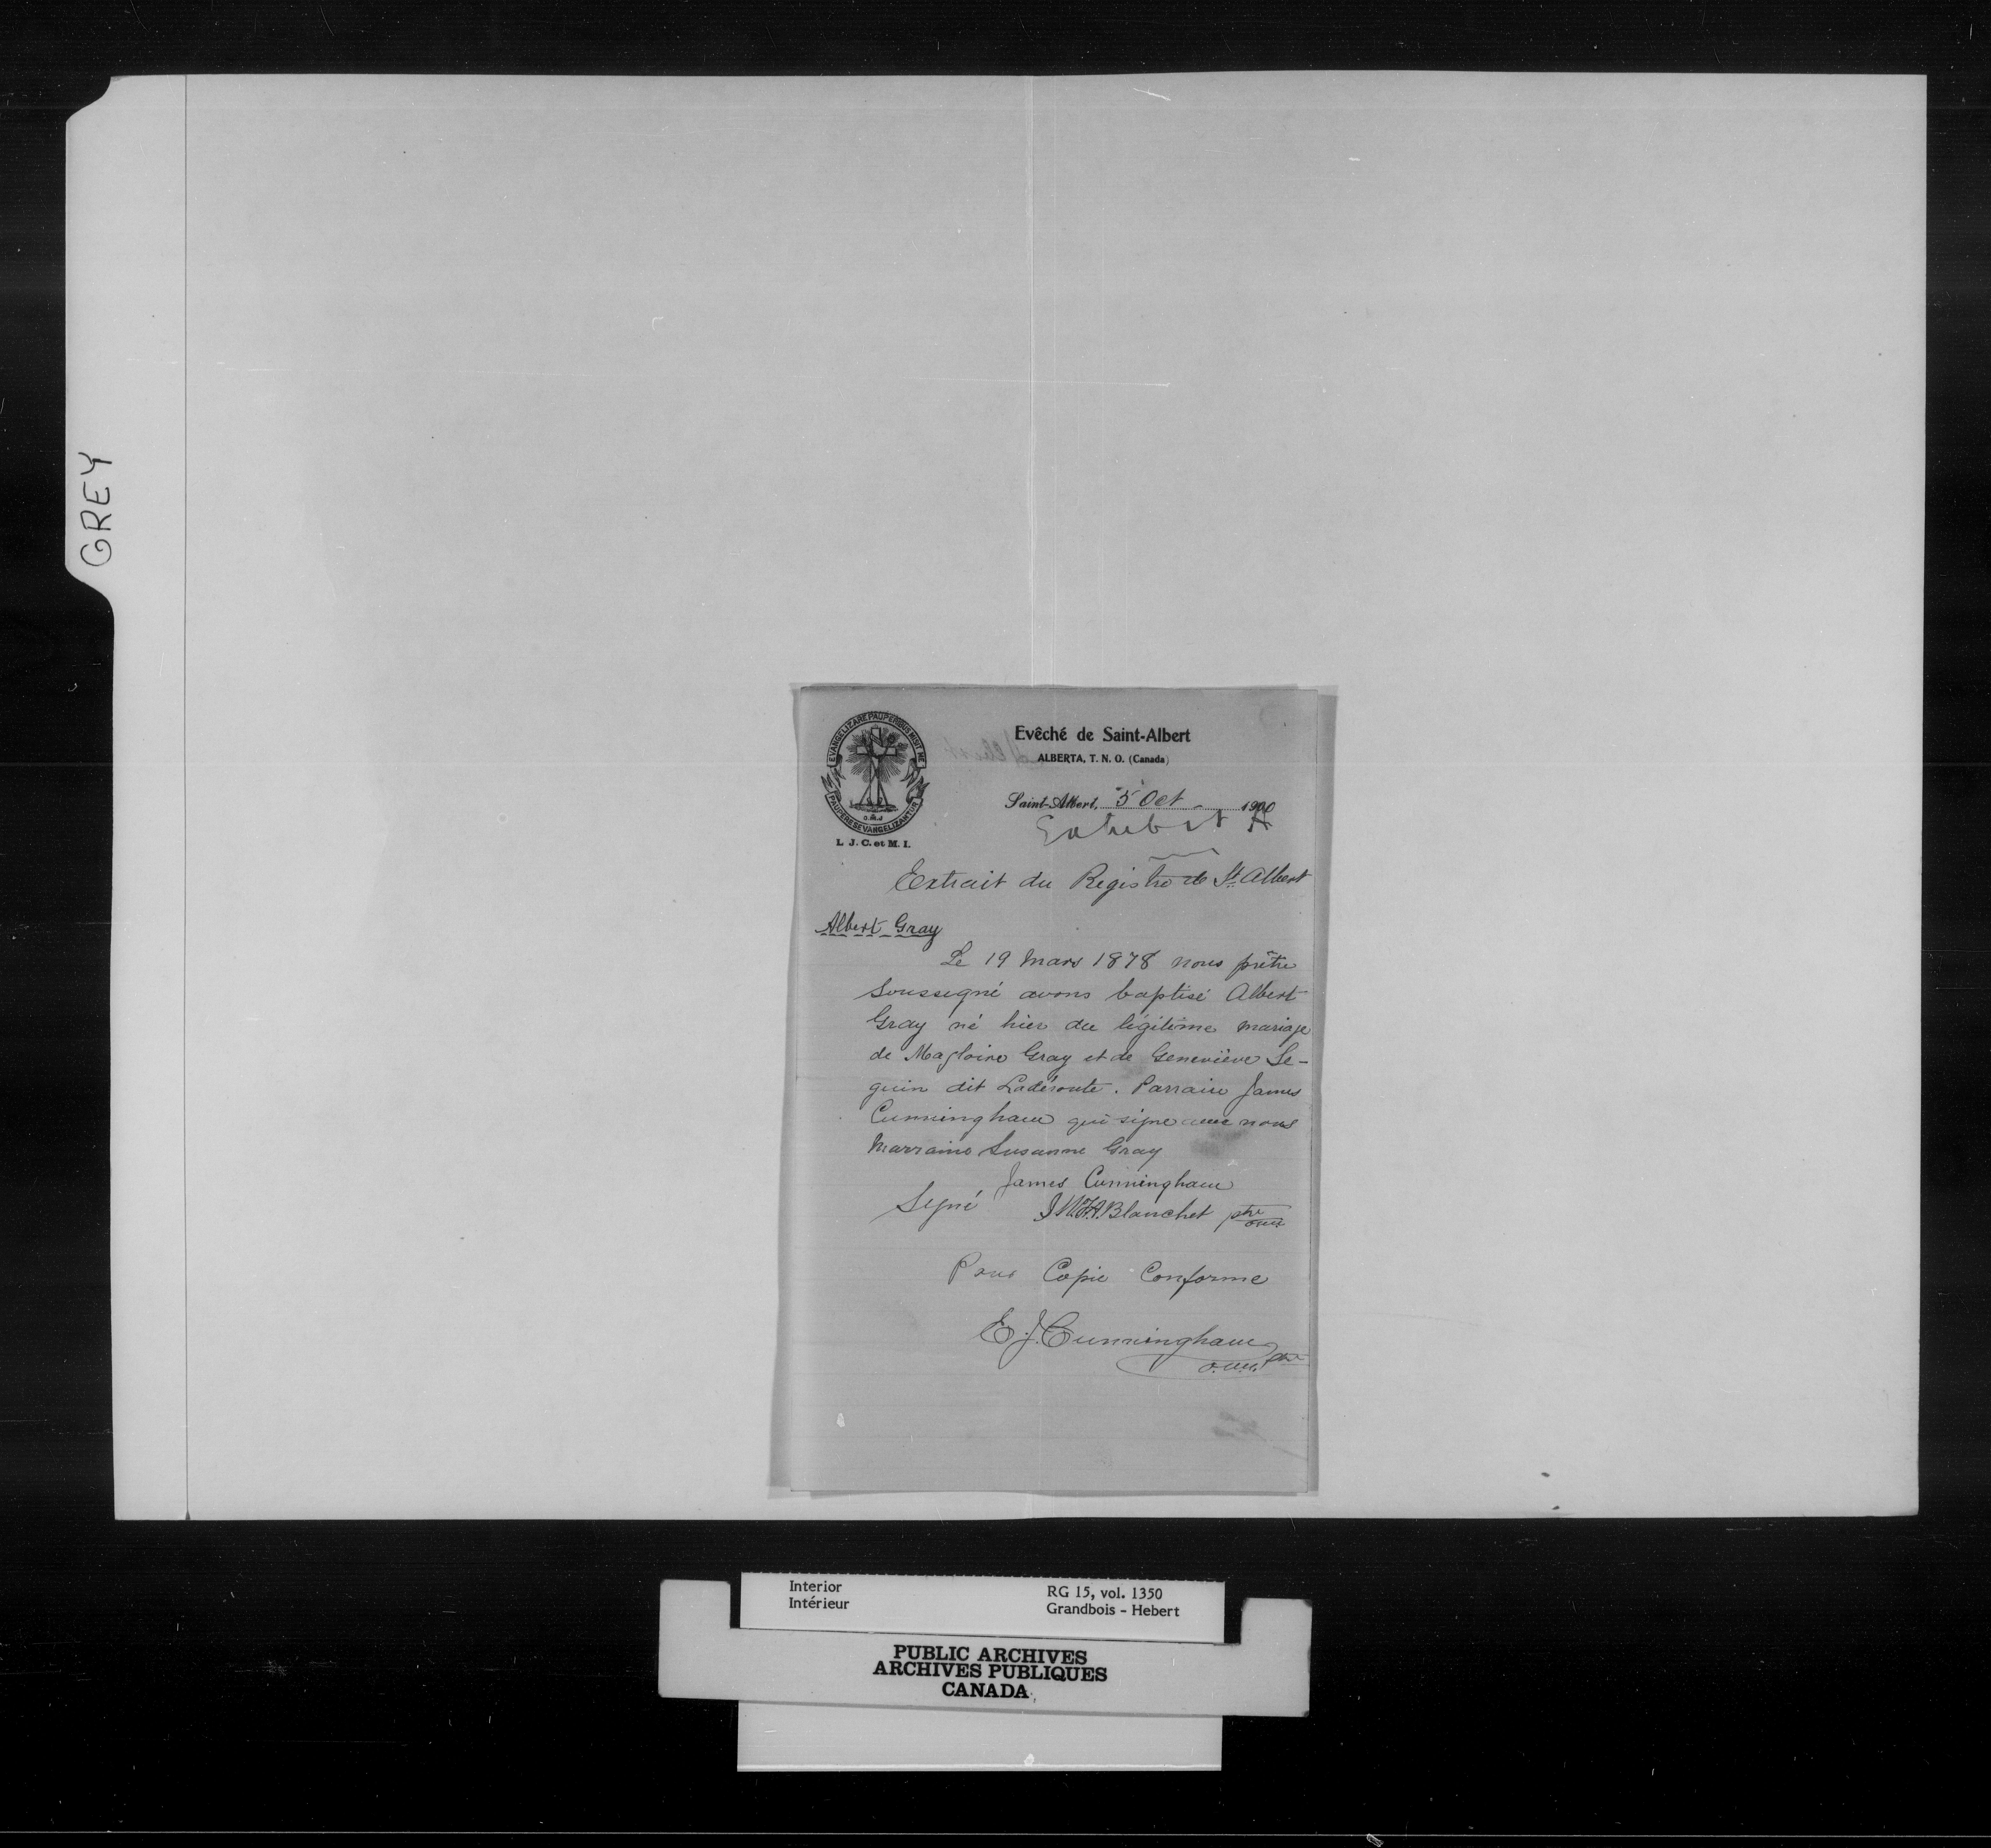 GREY
EVANGELIZARE PAUPERIBUS MISIT ME
PAUPERES EVANGELIZANTUR
O.M.I
L. J. C. et M. I.
Evêché de Saint-Albert
ALBERTA, T. N. O. (Canada)
Saint-Albert, 5 Oct 1900
Exhibit A
Extrait du Registre de St. Albert
Albert Gray
Le 19 Mars 1878 nous prêtre
soussigné avons baptisé Albert
Gray né hier du légitime mariage
de Magloire Gray et de Geneviève Se-
guin dit Ladéroute. Parrain James
Cunningham qui signe avec nous
Marraine Susanne Gray
James Cunningham
Signé Blanchet ptre
omi
Pour Copie Conforme
E. J. Cunningham
o.m.i. ptre
Interior
Intérieur
RG 15, vol. 1350
Grandbois - Hebert
PUBLIC ARCHIVES
ARCHIVES PUBLIQUES
CANADA